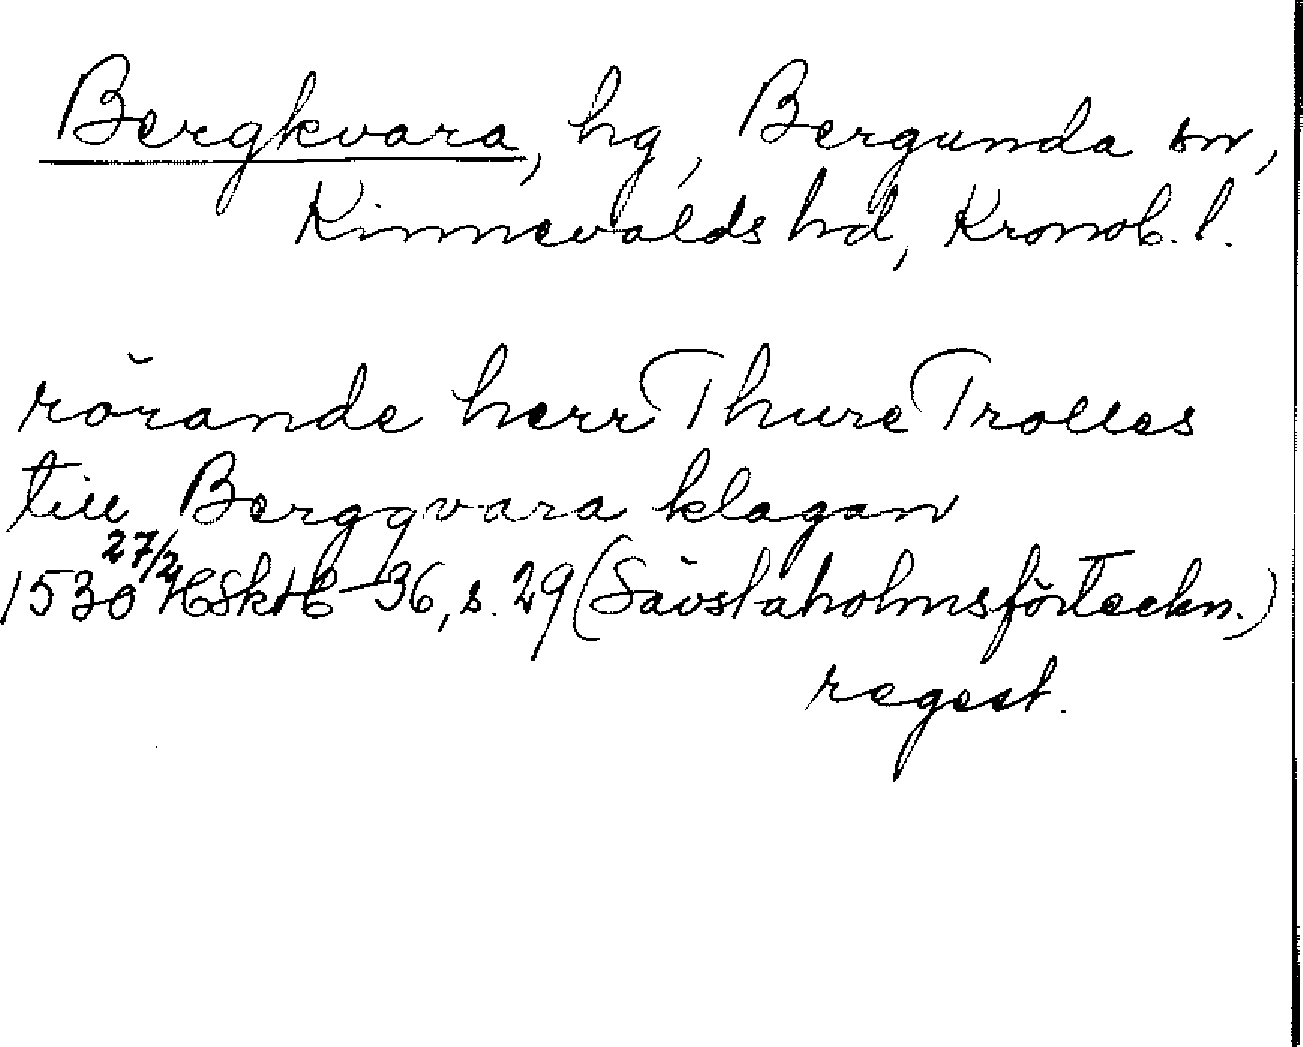 Bergkvara, hg, Bergunda sn,
Kinnevalds hd, Kronob. l.
rörande herr Thure Trolles
till Bergqvara klagan
1530 27/2 HSkH 36, s. 29 (Sävstaholmsförteckn.)
regest.